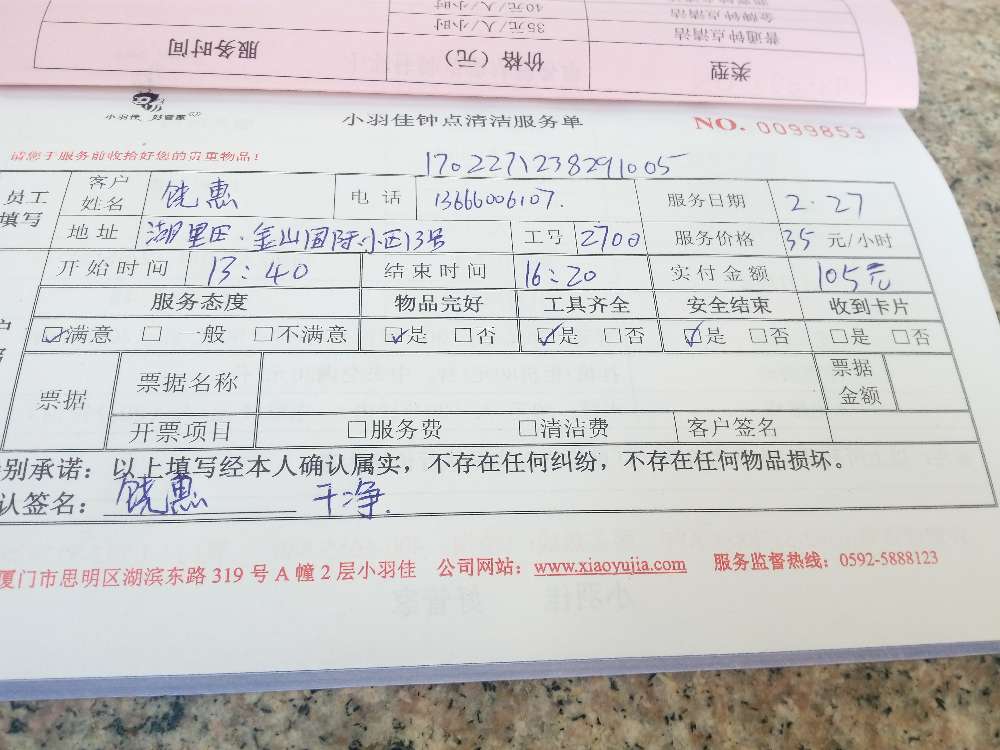 金牌钟点清洁 40元/人/小时
普通钟点清洁 35元/人/小时
类型 价格（元） 服务时间
小羽佳 好管家
小羽佳钟点清洁服务单 NO. 0099853
请您于服务前收拾好您的贵重物品！
170227123829 1005
员工填写 客户姓名 饶惠 电话 13666006107. 服务日期 2.27
地址 湖里田·金山国际小区13号 工号 2700 服务价格 35 元/小时
开始时间 13:40 结束时间 16:20 实付金额 105元
服务态度 物品完好 工具齐全 安全结束 收到卡片
☑满意 □一般 □不满意 ☑是 □否 ☑是 □否 ☑是 □否 □是 □否
票据 票据名称 票据金额
开票项目 □服务费 □清洁费 客户签名
别承诺：以上填写经本人确认属实，不存在任何纠纷，不存在任何物品损坏。
认签名：饶惠 干净.
厦门市思明区湖滨东路 319 号 A 幢 2 层小羽佳 公司网站：www.xiaoyujia.com 服务监督热线：0592-5888123